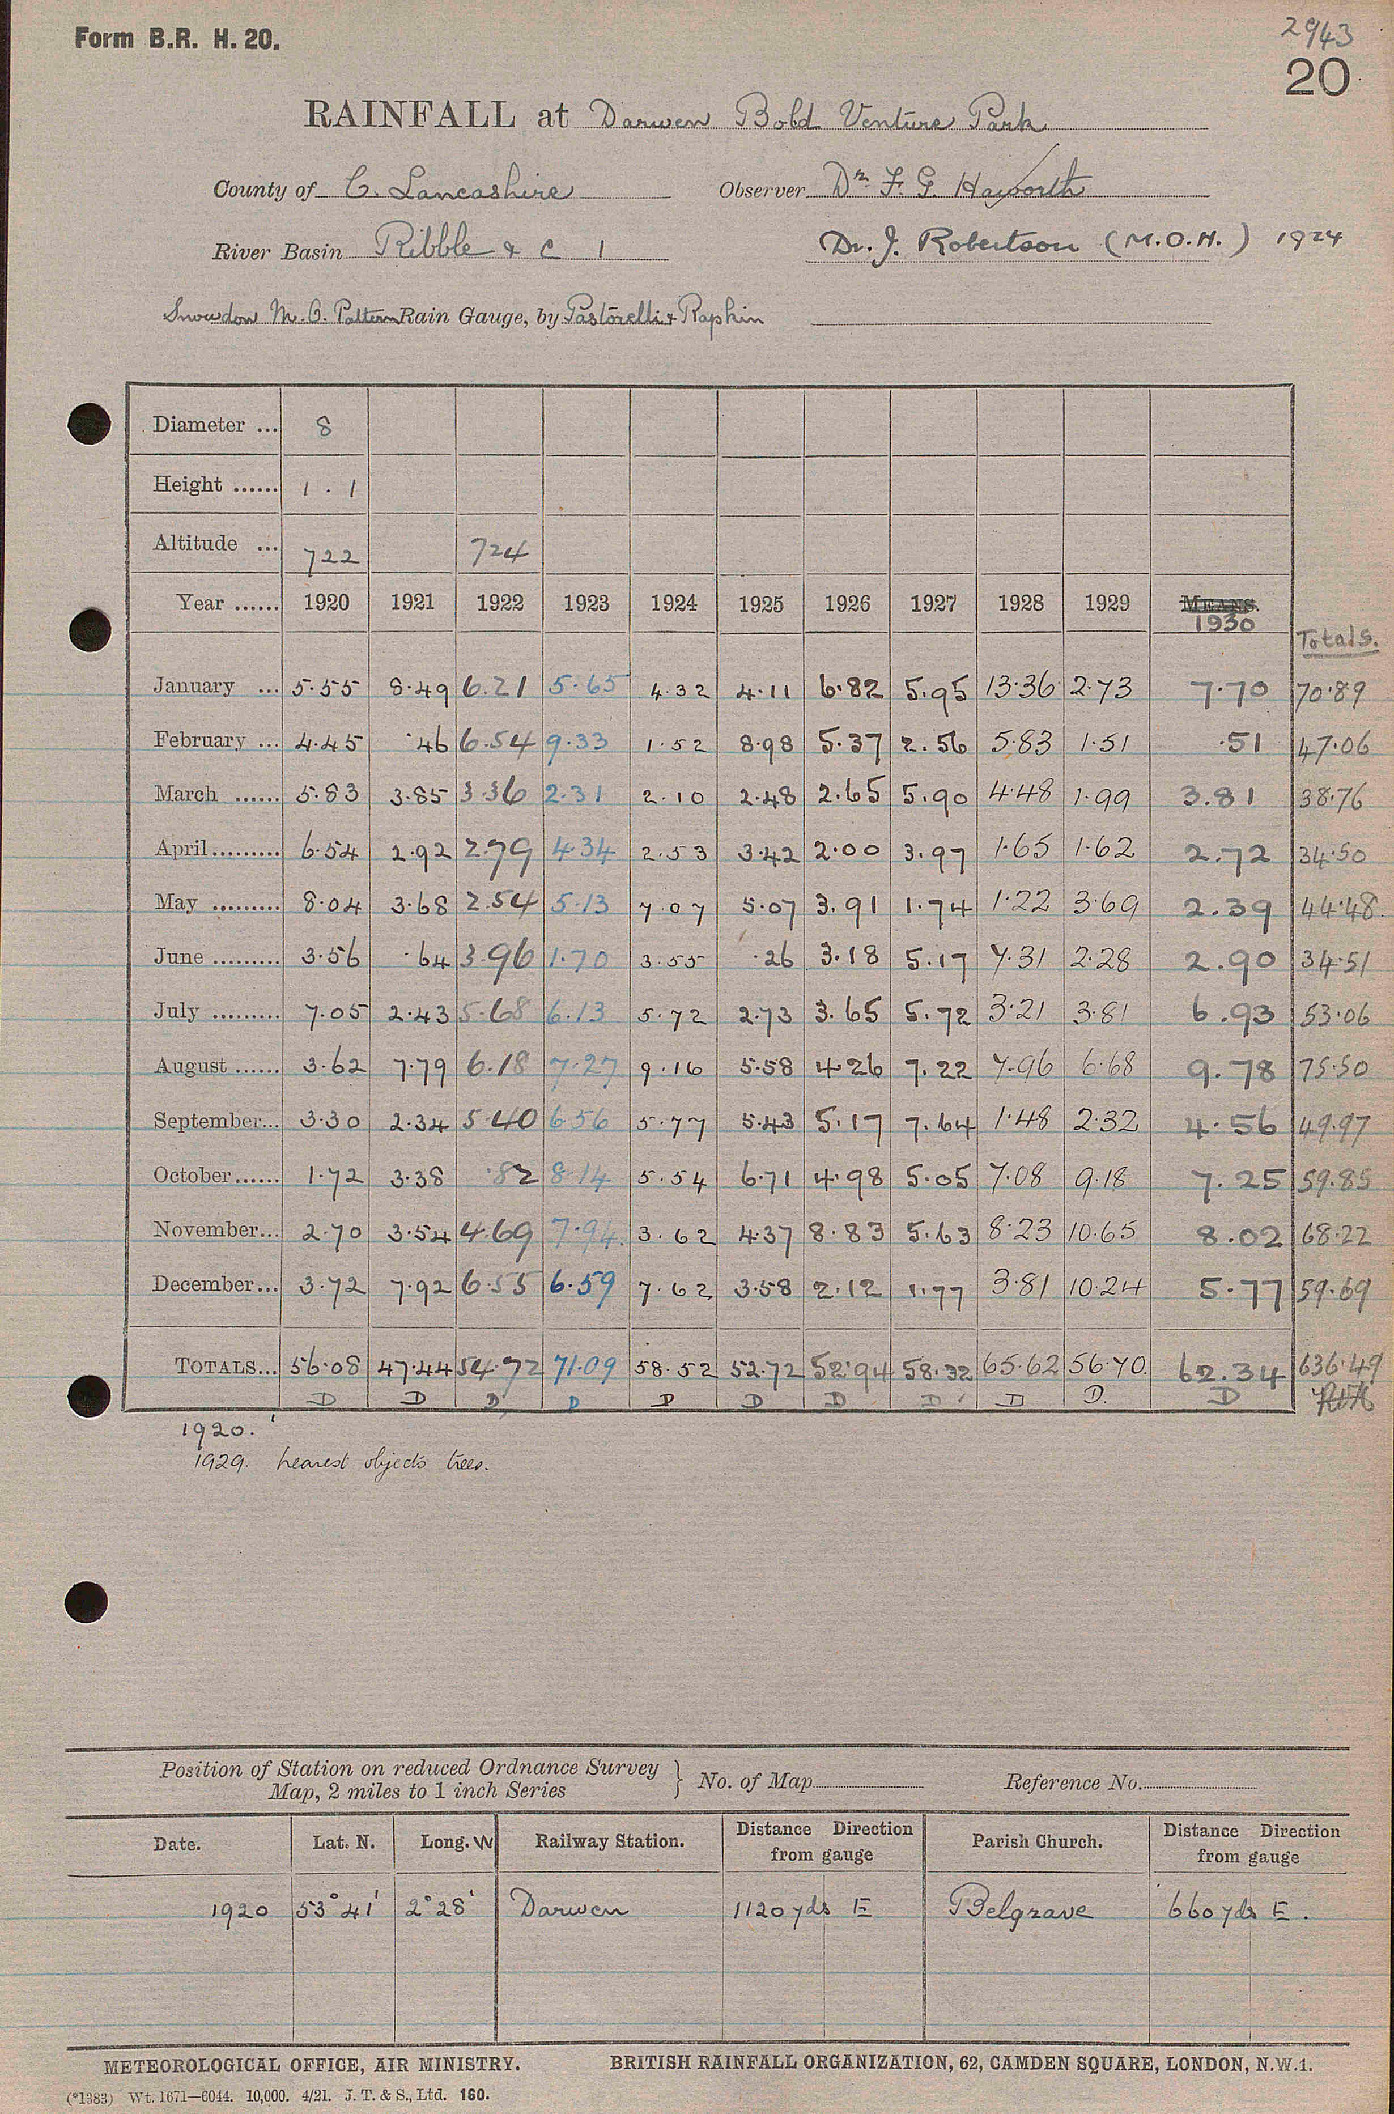 Form B.R. H. 20.
2943
20
RAINFALL at Darwen Bold Venture Park
County of C. Lancashire Observer Dr F. G. Haworth
River Basin Ribble & C 1 Dr. J. Robertson (M.O.H.) 1924
Snowdon M.O. Pattern Rain Gauge, by Pastorelli & Rapkin
Diameter ... 8
Height ...... 1 . 1
Altitude ... 722 724
Year ...... 1920 1921 1922 1923 1924 1925 1926 1927 1928 1929 MEANS.
1930 Totals.
January ... 5.55 8.49 6.21 5.65 4.32 4.11 6.82 5.95 13.36 2.73 7.70 70.89
February ... 4.45 .46 6.54 9.33 1.52 8.98 5.37 2.56 5.83 1.51 .51 47.06
March ...... 5.83 3.85 3.36 2.31 2.10 2.48 2.65 5.90 4.48 1.99 3.81 38.76
April ......... 6.54 2.92 2.79 4.34 2.53 3.42 2.00 3.97 1.65 1.62 2.72 34.50
May ......... 8.04 3.68 2.54 5.13 7.07 5.07 3.91 1.74 1.22 3.69 2.39 44.48
June ......... 3.56 .64 3.96 1.70 3.55 .26 3.18 5.17 7.31 2.28 2.90 34.51
July ......... 7.05 2.43 5.68 6.13 5.72 2.73 3.65 5.72 3.21 3.81 6.93 53.06
August ...... 3.62 7.79 6.18 7.27 9.16 5.58 4.26 7.22 7.96 6.68 9.78 75.50
September... 3.30 2.34 5.40 6.56 5.77 5.43 5.17 7.64 1.48 2.32 4.56 49.97
October...... 1.72 3.38 .82 8.14 5.54 6.71 4.98 5.05 7.08 9.18 7.25 59.85
November... 2.70 3.54 4.69 7.94 3.62 4.37 8.83 5.63 8.23 10.65 8.02 68.22
December... 3.72 7.92 6.55 6.59 7.62 3.58 2.12 1.77 3.81 10.24 5.77 59.69
TOTALS... 56.08 47.44 54.72 71.09 58.52 52.72 52.94 58.32 65.62 56.70 62.34 636.49
D D D D D D D D D D. D
1920.
1929. nearest objects trees.
Position of Station on reduced Ordnance Survey
Map, 2 miles to 1 inch Series } No. of Map Reference No.
Date. Lat. N. Long. W Railway Station. Distance from gauge Direction Parish Church. Distance from gauge Direction
1920 53° 41' 2° 28' Darwen 1120 yds E Belgrave 660 yds E.
METEOROLOGICAL OFFICE, AIR MINISTRY. BRITISH RAINFALL ORGANIZATION, 62, CAMDEN SQUARE, LONDON, N.W.1.
(*1383) Wt. 1671—6044. 10,000. 4/21. J. T. & S., Ltd. 160.